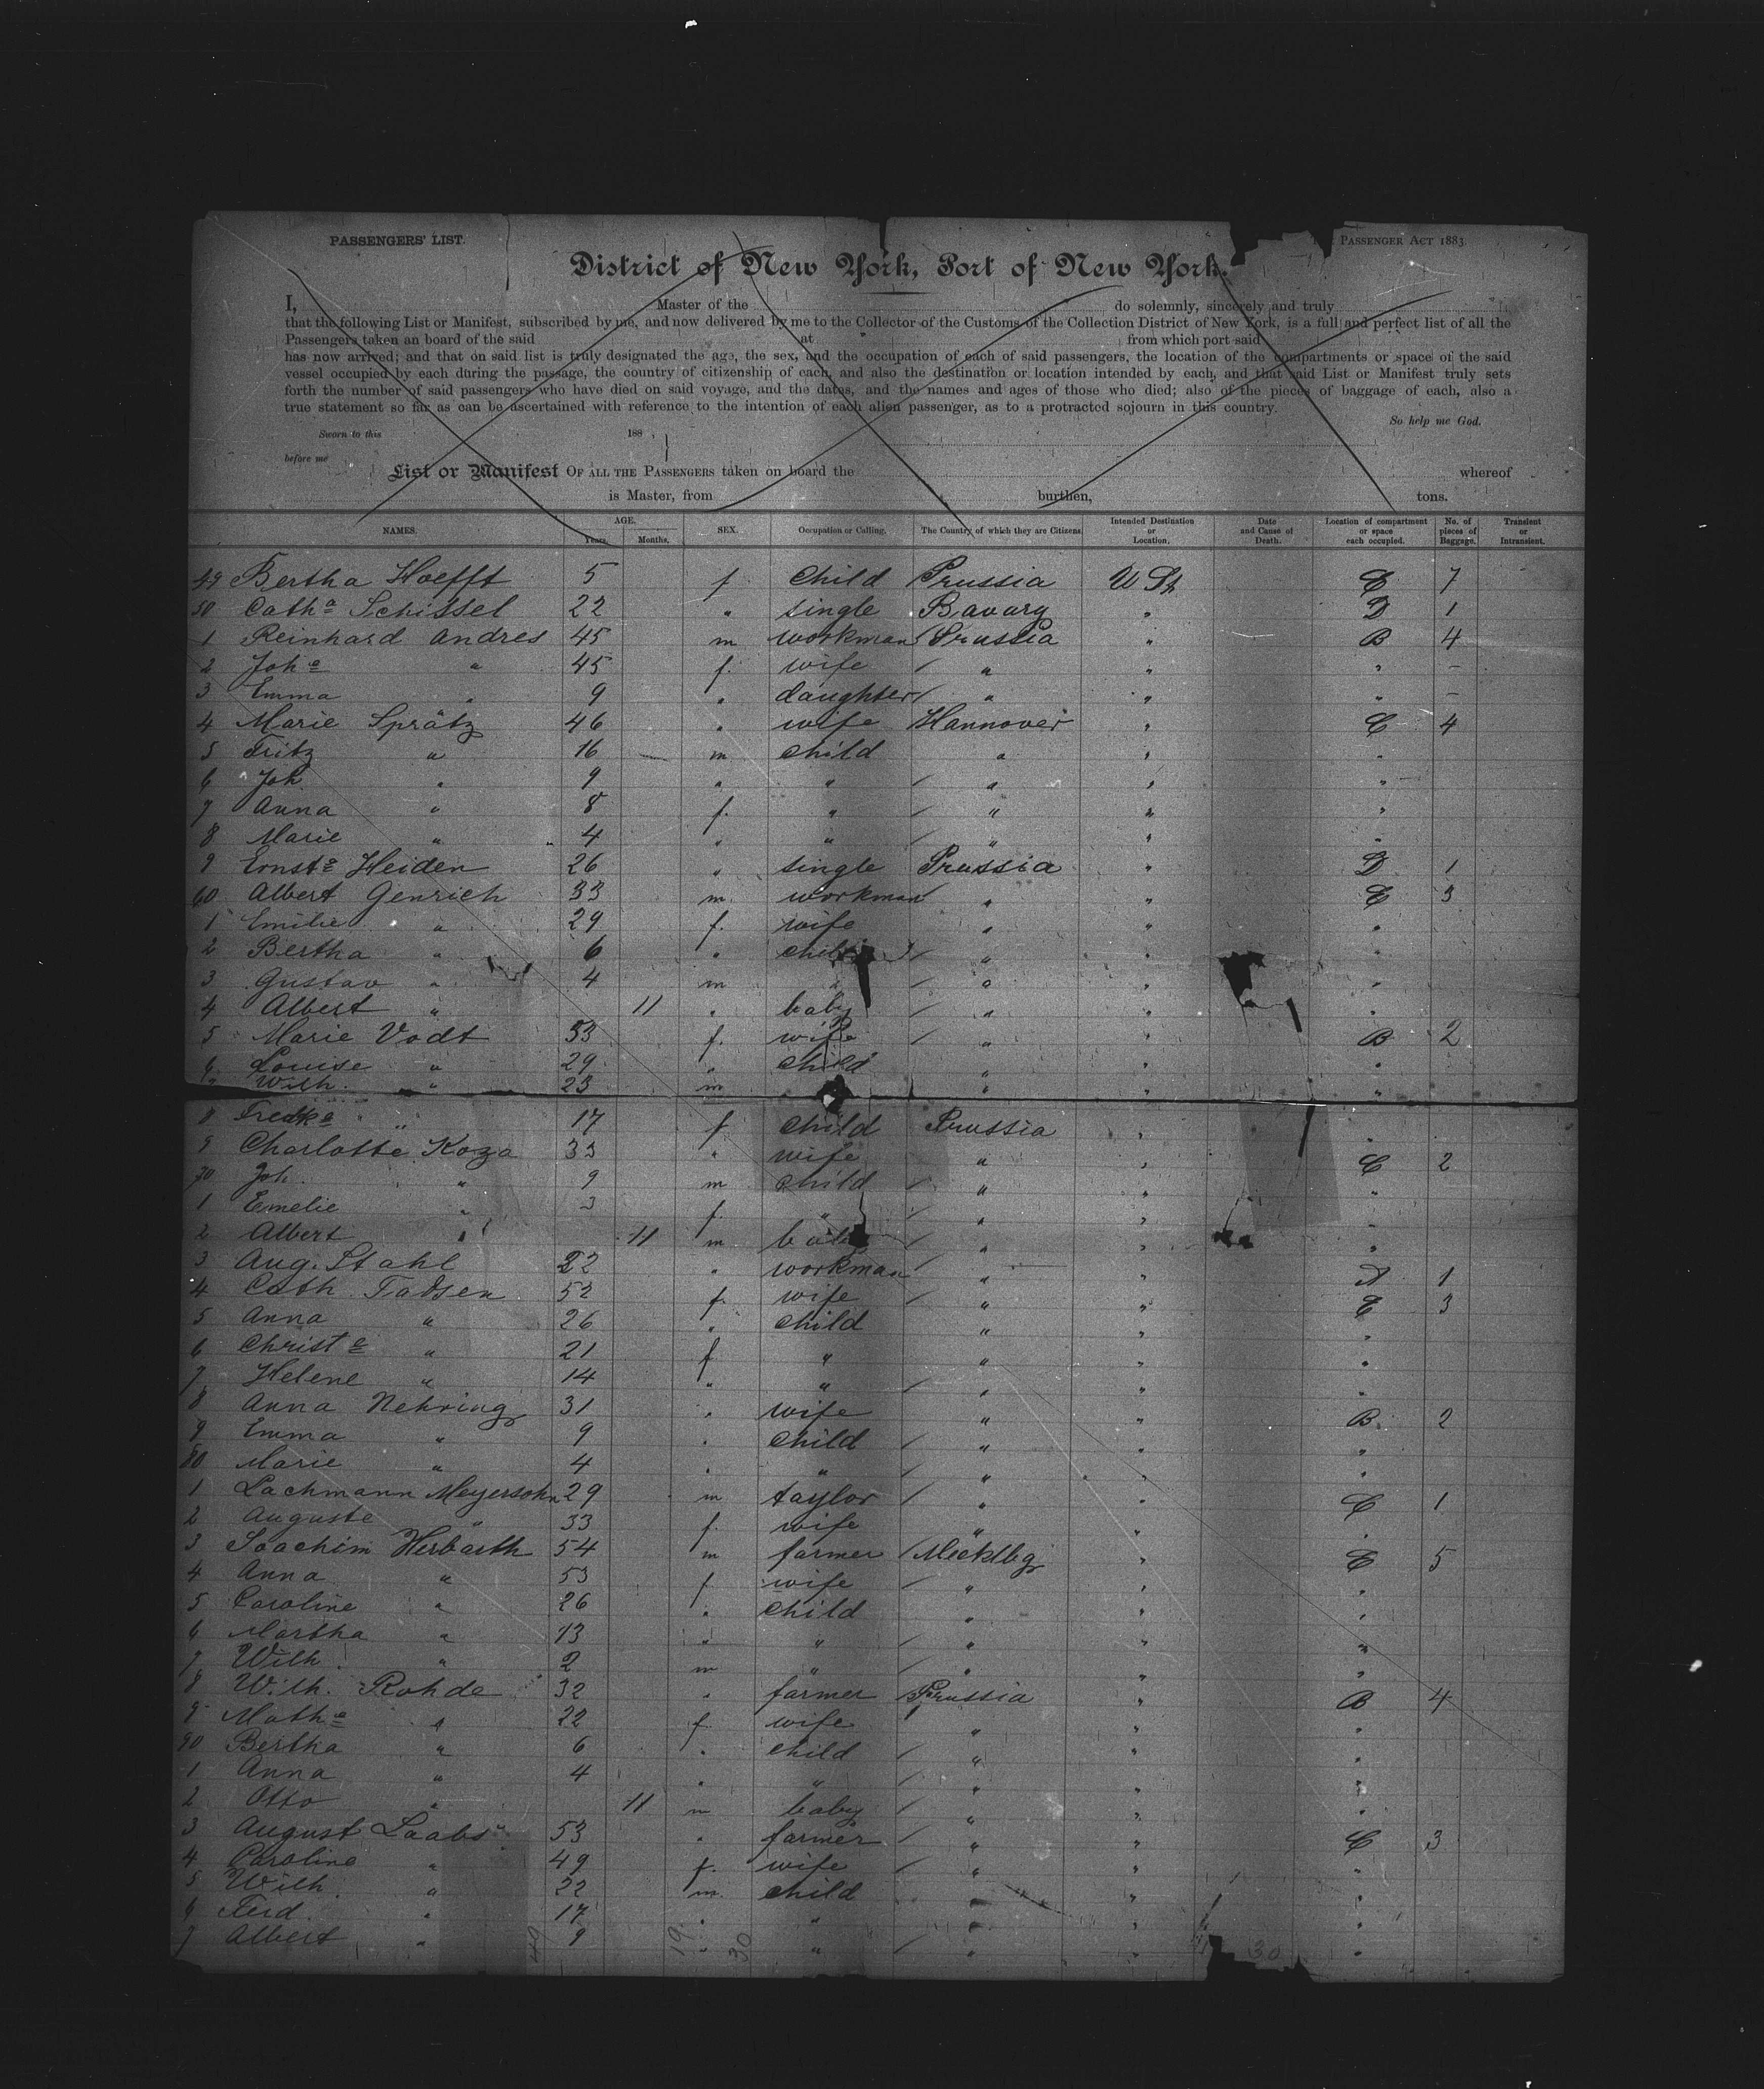 PASSENGERS' LIST.
PASSENGER ACT 1883
District of New York, Port of New York.
I, Master of the do solemnly, sincerely and truly
that the following List or Manifest, subscribed by me, and now delivered by me to the Collector of the Customs of the Collection District of New York, is a full and perfect list of all the
Passengers taken on board of the said at from which port said
has now arrived; and that on said list is truly designated the age, the sex, and the occupation of each of said passengers, the location of the compartments or space of the said
vessel occupied by each during the passage, the country of citizenship of each, and also the destination or location intended by each, and that said List or Manifest truly sets
forth the number of said passengers who have died on said voyage, and the dates, and the names and ages of those who died; also of the pieces of baggage of each, also a
true statement so far as can be ascertained with reference to the intention of each alien passenger, as to a protracted sojourn in this country.
So help me God.
Sworn to this 188
before me
List or Manifest OF ALL THE PASSENGERS taken on board the whereof
is Master, from burthen, tons.
NAMES. AGE. Years. Months. SEX. Occupation or Calling. The Country of which they are Citizens Intended Destination or Location. Date and Cause of Death. Location of compartment or space each occupied. No. of pieces of Baggage. Transient or Intransient.
49 Bertha Hoefft 5 f child Prussia U St C 7
50 Catha Schissel 22 " single Bavary " D 1
1 Reinhard Andres 45 m workman Prussia " B 4
2 Joha " 45 f. wife " " " -
3 Emma " 9 " daughter " " " -
4 Marie Sprätz 46 " wife Hannover " C 4
5 Fritz " 16 m child " " "
6 Joh " 9 " " " " "
7 Anna " 8 f. " " " "
8 Marie " 4 " " " " "
9 Ernste Heiden 26 " single Prussia " D 1
60 Albert Genrich 33 m. workman " " C 3
1 Emilie " 29 f. wife " " "
2 Bertha " 6 " child " " "
3 Gustav " 4 m " " " "
4 Albert " 11 " baby " " "
5 Marie Vodt 53 f. wife " " B 2
6 Louise " 29 " child " " "
7 Wilh. " 23 m " " "
8 Fredke " 17 f child Prussia " "
9 Charlotte Koza 33 " wife " " C 2
70 Joh. " 9 m child " " "
1 Emelie " 3 f. " " " "
2 Albert " 11 m baby " " "
3 Aug. Stahl 22 " workman " " A 1
4 Cath Tadsen 52 f. wife " " C 3
5 Anna " 26 " child " " "
6 Christe " 21 f " " " "
7 Helene " 14 " " " " "
8 Anna Nehring 31 " wife " " B 2
9 Emma " 9 " child " " "
80 Marie " 4 " " " " "
1 Lachmann Meyersohn 29 m taylor " " C 1
2 Auguste " 33 f. wife " " "
3 Joachim Herbarth 54 m farmer Mecklbg " C 5
4 Anna " 53 f. wife " " "
5 Caroline " 26 " child " " "
6 Martha " 13 " " " " "
7 Wilh. " 2 m " " " "
8 Wilh. Rohde 32 " farmer Prussia " B 4
9 Mathe " 22 f. wife " " "
90 Bertha " 6 " child " " "
1 Anna " 4 " " " " "
2 Otto " 11 m baby " " "
3 August Laabs 53 " farmer " " C 3
4 Caroline " 49 f. wife " " "
5 Wilh. " 22 m. child " "
6 Ferd. " 17 " " " "
7 Albert " 9 " " " " "
49 19 30 30